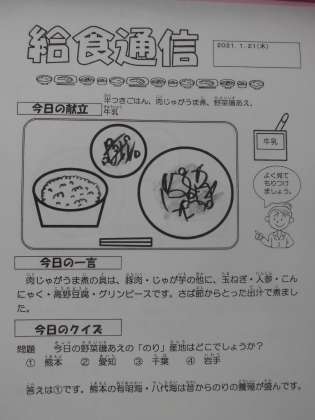 給食通信
2021.1.21(木)
今日の献立
半つきごはん、肉じゃがうま煮、野菜磯あえ、
牛乳
牛乳
よく見て
もりつけ
ましょう。
今日の一言
肉じゃがうま煮の具は、豚肉・じゃが芋の他に、玉ねぎ・人参・こん
にゃく・高野豆腐・グリンピースです。さば節からとった出汁で煮まし
た。
今日のクイズ
問題 今日の野菜磯あえの「のり」産地はどこでしょうか？
① 熊本 ② 愛知 ③ 千葉 ④ 岩手
答えは①です。熊本の有明海・八代海は昔からのりの養殖が盛んです。